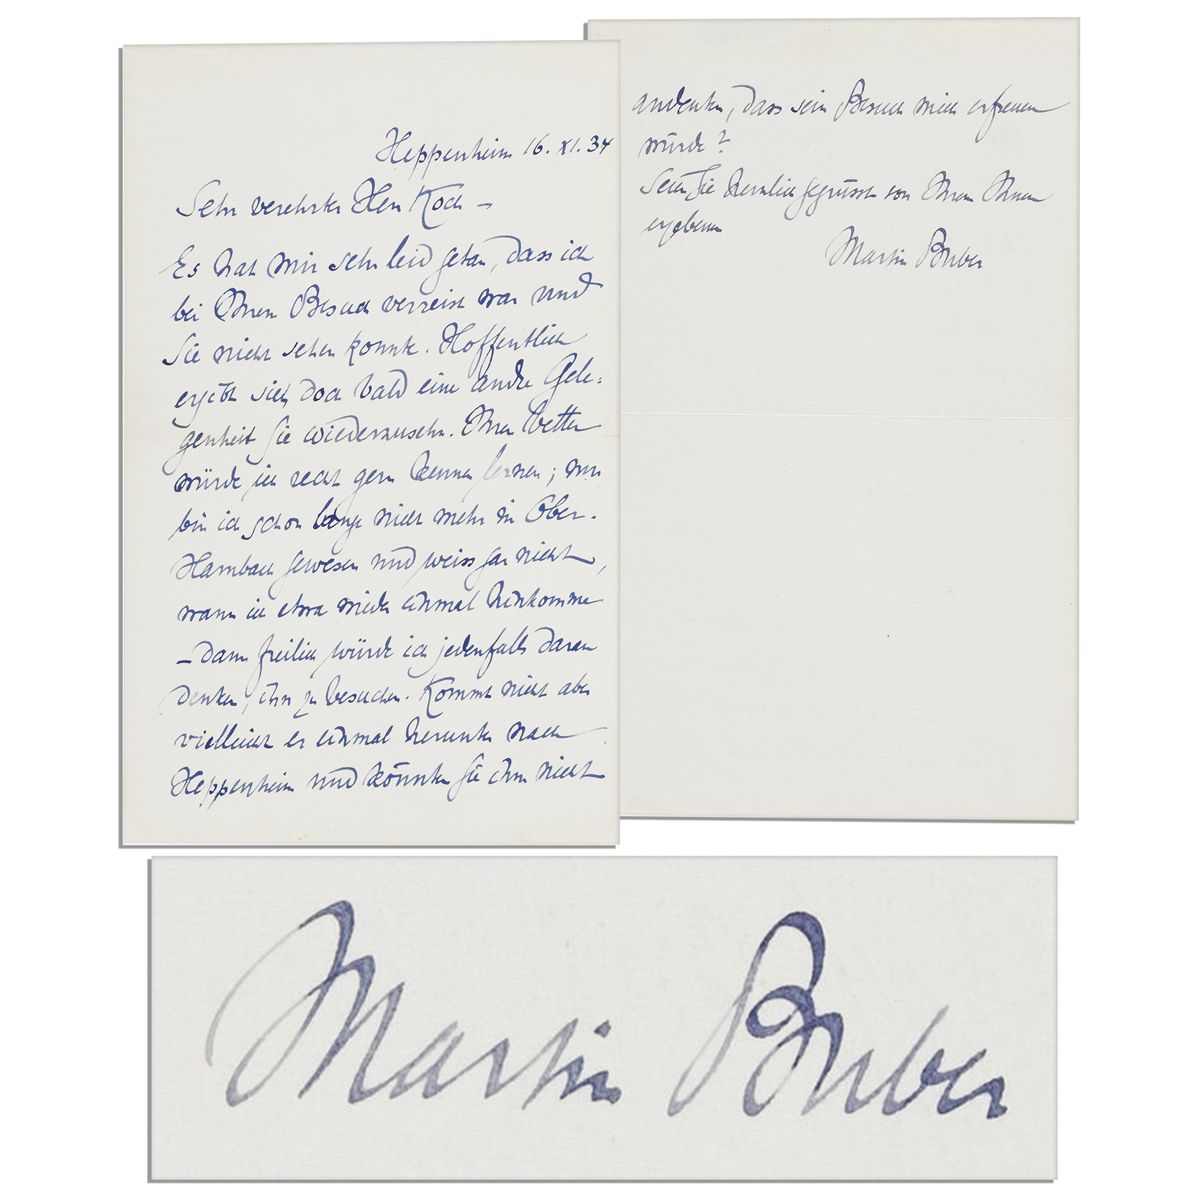 Heppenheim 16. XI. 34
Sehr verehrter Herr Koch –
Es hat mir sehr leid getan, dass ich
bei Ihrem Besuch verreist war und
Sie nicht sehen konnte. Hoffentlich
ergibt sich doch bald eine andre Gele-
genheit Sie wiederzusehn. Ihren Vetter
würde ich recht gern kennen lernen; nur
bin ich schon lange nicht mehr in Ober-
Hambach gewesen und weiss gar nicht,
wann ich etwa wieder einmal hinkomme
– dann freilich würde ich jedenfalls daran
denken, ihn zu besuchen. Kommt nicht aber
vielleicht er einmal herunter nach
Heppenheim und könnten Sie ihm nicht
andeuten, dass sein Besuch mich erfreuen
würde?
Seien Sie herzlich gegrüsst von Ihrem Ihnen
ergebenen
Martin Buber
Martin Buber